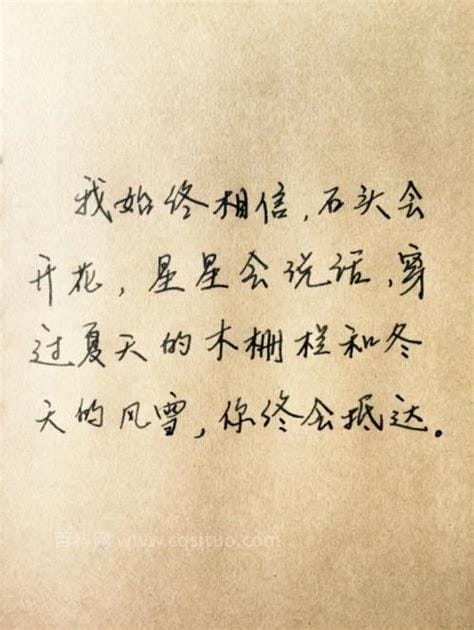 我始终相信,石头会
开花,星星会说话,穿
过夏天的木栅栏和冬
天的风雪,你终会抵达。
百科网 www.cqsituo.com